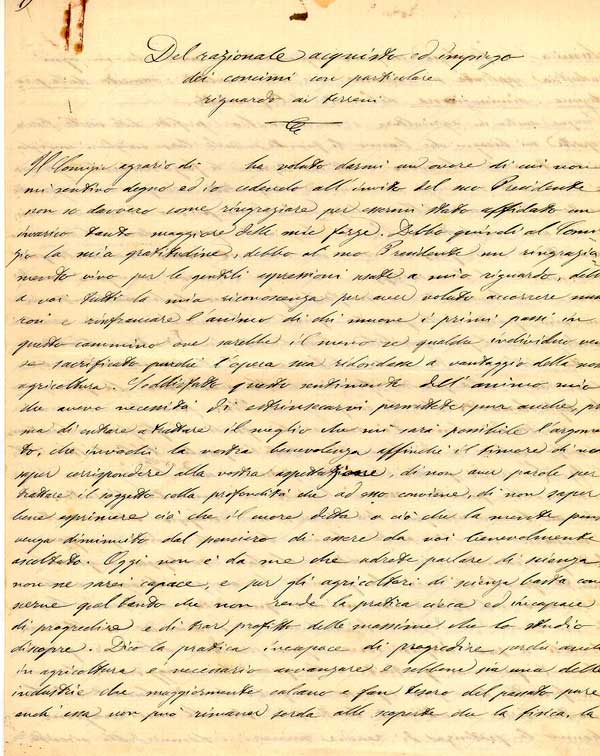 Del razionale acquisto ed impiego
dei concimi con particolare
riguardo ai terreni
Il Comizio agrario di ha voluto darmi un onore di cui non
mi sentivo degno ed io cedendo all'invito del suo Presidente
non so davvero come ringraziare per essermi stato affidato un
incarico tanto maggiore delle mie forze. Debbo quindi al Comi-
zio la mia gratitudine, debbo al suo Presidente un ringrazia-
mento vivo per le gentili espressioni usate a mio riguardo, debbo
a voi tutti la mia riconoscenza per aver voluto accorrere nume
rosi e rinfrancare l'animo di chi muove i primi passi in
questo cammino ove sarebbe il meno se qualche individuo ve
se sacrificato purché l'opera sua ridondasse a vantaggio della
agricoltura. Soddisfatto questo sentimento dell'animo mio
che avevo necessità di estrinsecarvi permettete pure anche, pri
ma di entrare a trattare il meglio che mi sarà possibile l'argomen
to, che invochi la vostra benevolenza affinché il timore di non
saper corrispondere alla vostra aspettazione, di non aver parole per
trattare il soggetto colla profondità che ad esso conviene, di non saper
bene esprimere ciò che il cuore detta o ciò che la mente pensa
venga diminuito dal pensiero di essere da voi benevolmente
ascoltato. Oggi non è da me che udrete parlare di scienza,
non ne sarei capace, e per gli agricoltori di scienza basta
quel tanto che non rende la pratica cieca ed incapace
di progredire e di trar profitto delle massime che lo studio
discopre. Dico la pratica incapace di progredire perché anche
in agricoltura è necessario avanzare e sebbene sia una delle
industrie che maggiormente calcano e fan tesoro del passato pure
anch'essa non può rimaner sorda alle scoperte che la fisica, la